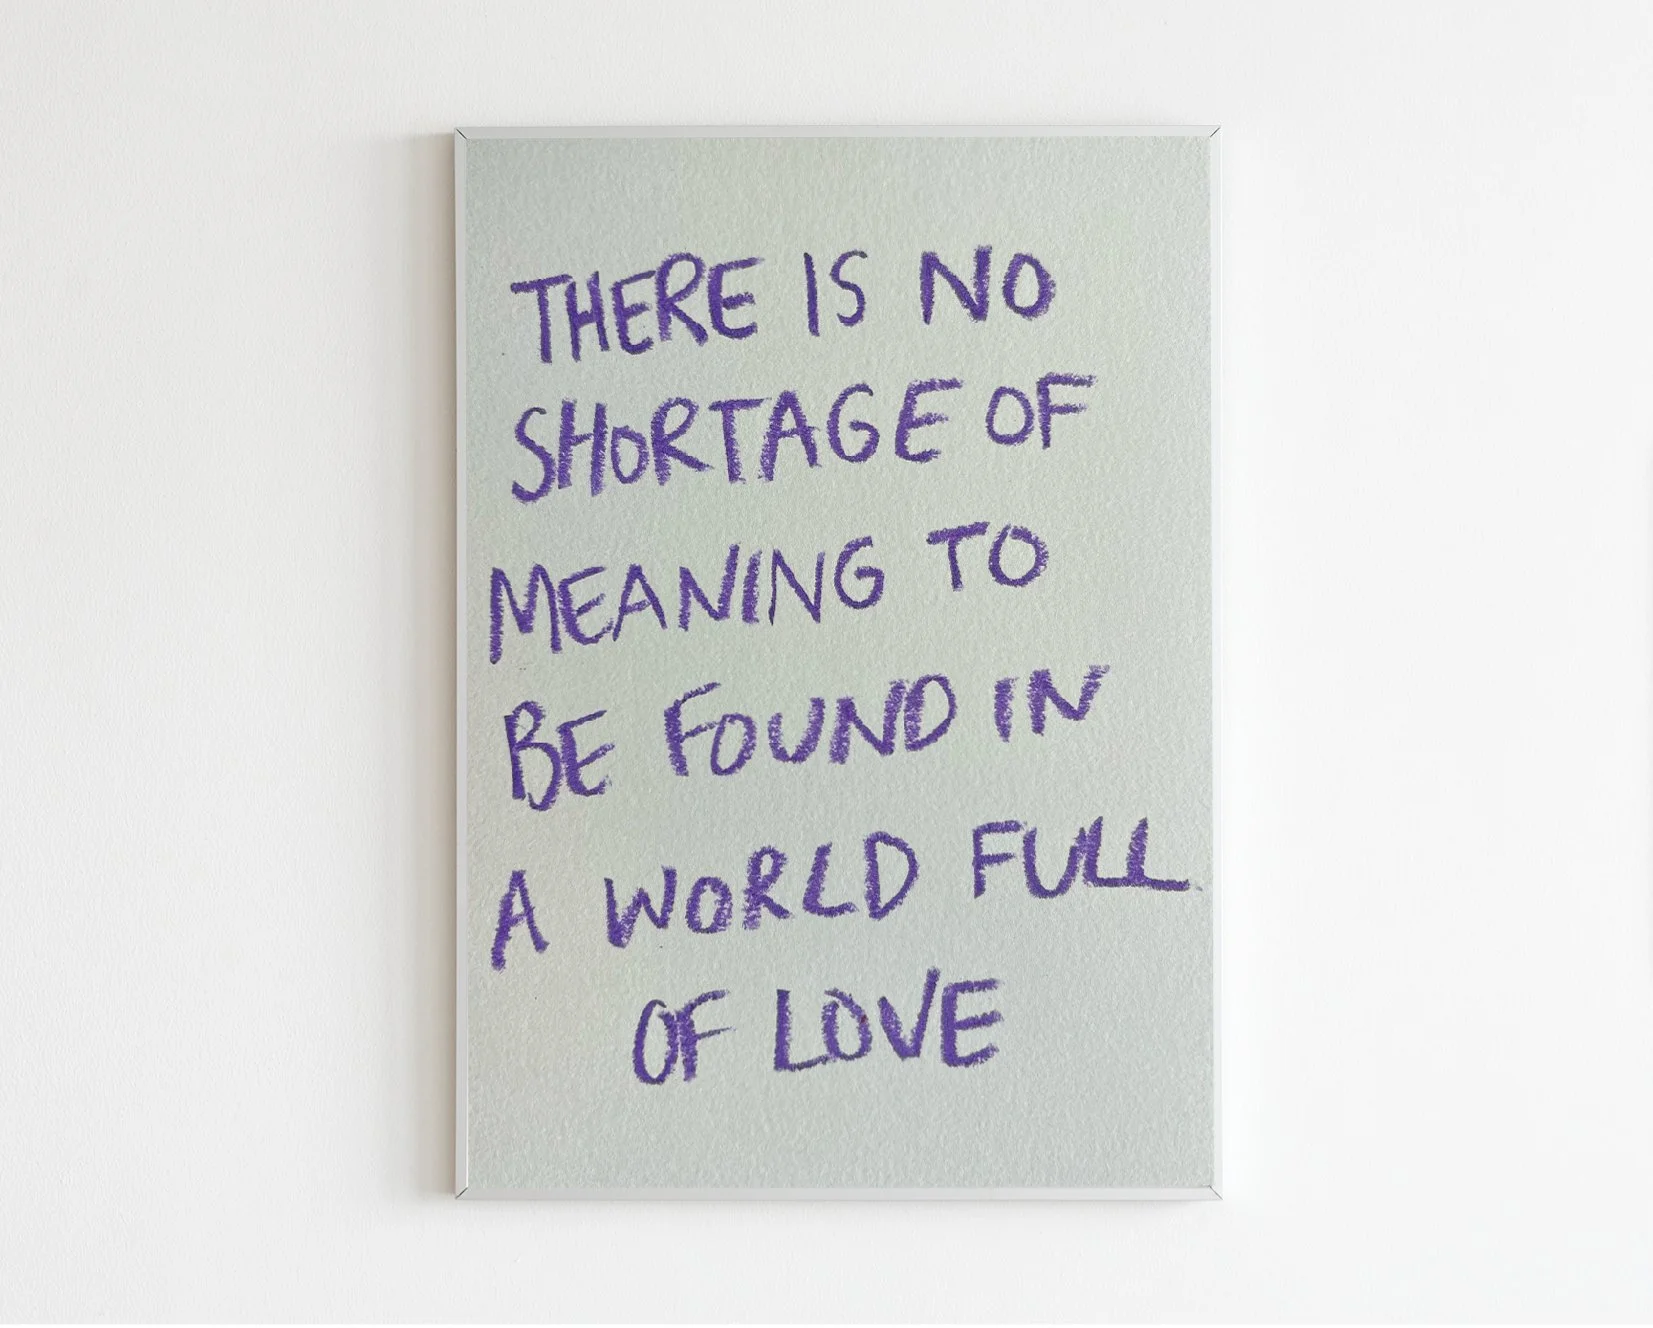 THERE IS NO
SHORTAGE OF
MEANING TO
BE FOUND IN
A WORLD FULL
OF LOVE